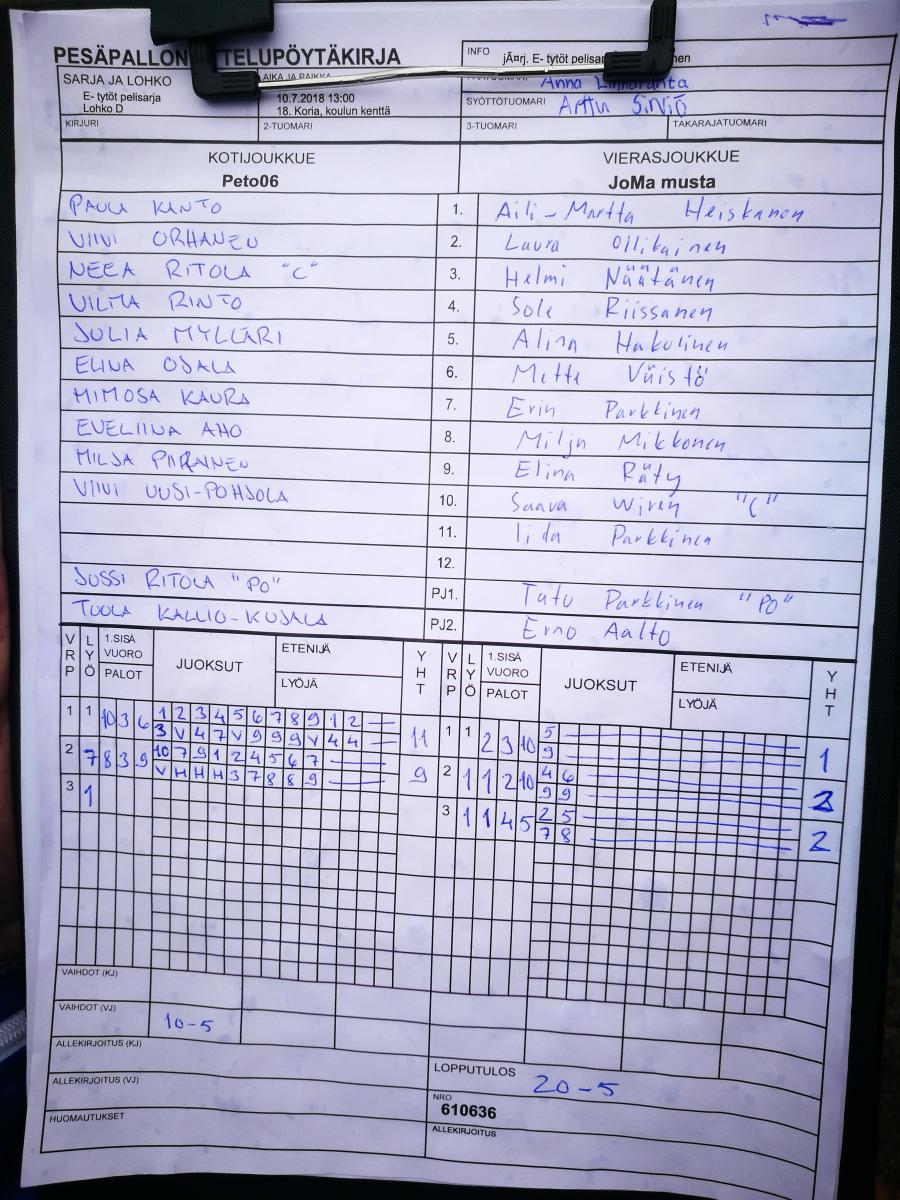 PESÄPALLON TTELUPÖYTÄKIRJA
INFO
E- tytöt pelisar nen
SARJA JA LOHKO
E- tytöt pelisarja
Lohko D
AIKA JA PAIKKA
10.7.2018 13:00
18. Koria, koulun kenttä
Anna
SYÖTTÖTUOMARI
Arttu Sirviö
KIRJURI
2-TUOMARI
3-TUOMARI
TAKARAJATUOMARI
KOTIJOUKKUE
Peto06
VIERASJOUKKUE
JoMa musta
PAULA KANTO 1. Aili-Martta Heiskanen
VIIVI ORHANEN 2. Laura Oilikainen
NEEA RITOLA "C" 3. Helmi Näätänen
VILMA RINTO 4. Sole Riissanen
JULIA MYLLÄRI 5. Alina Hakulinen
ELINA OJALA 6. Mette Väistö
MIMOSA KAURA 7. Erin Parkkinen
EVELIINA AHO 8. Milja Mikkonen
MILJA PIIRAINEN 9. Elina Räty
VIIVI UUSI-POHJOLA 10. Saava Wiren "C"
11. Iida Parkkinen
12.
JUSSI RITOLA "PO" PJ1. Tatu Parkkinen "PO"
TUULA KALLIO-KUJALA PJ2. Erno Aalto
VRP LYÖ 1.SISÄ VUORO PALOT JUOKSUT ETENIJÄ LYÖJÄ YHT VRP LYÖ 1.SISÄ VUORO PALOT JUOKSUT ETENIJÄ LYÖJÄ YHT
1 1 10 3 6 1 2 3 4 5 6 7 8 9 1 2 11 1 1 2 3 10 5 1
3 V 4 7 V 9 9 9 V 4 4 9
2 7 8 3 9 10 7 9 1 2 4 5 6 7 9 2 1 1 2 10 4 6 2
V H H H 3 7 8 8 9 9 9
3 1 3 1 1 4 5 2 5 2
7 8
VAIHDOT (KJ)
VAIHDOT (VJ)
10-5
ALLEKIRJOITUS (KJ)
LOPPUTULOS
20-5
ALLEKIRJOITUS (VJ)
NRO
610636
HUOMAUTUKSET
ALLEKIRJOITUS